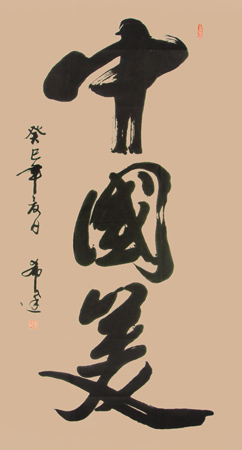 中國美
癸巳年夏日
希達